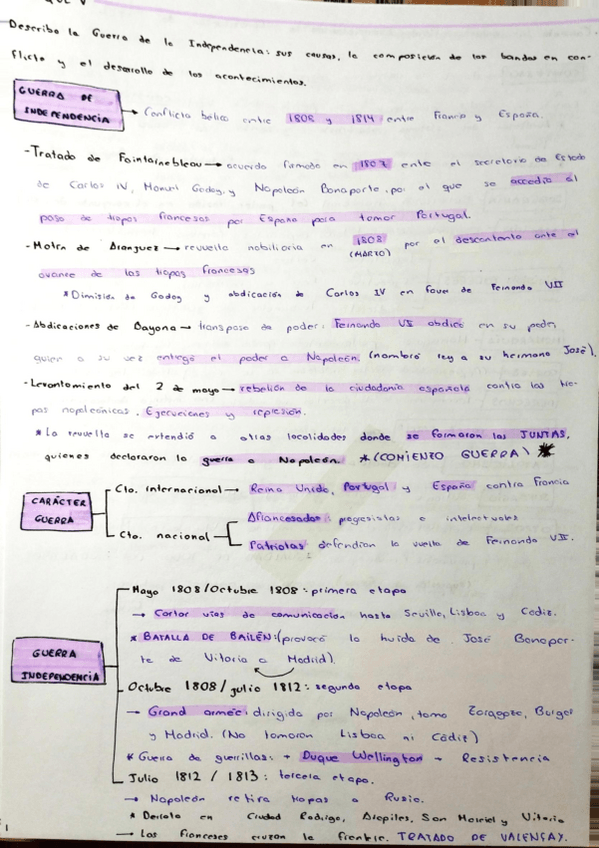 Describa la Guerra de la Independencia: sus causas, la composición de los bandos en con-
flicto y el desarrollo de los acontecimientos.
GUERRA DE
INDEPENDENCIA → Conflicto bélico entre 1808 y 1814 entre Francia y España.
-Tratado de Fontainebleau → acuerdo firmado en 1807 ente el secretario de Estado
de Carlos IV, Manuel Godoy, y Napoleón Bonaparte, por el que se accedió al
paso de tropas francesas por España para tomar Portugal.
-Motín de Aranjuez → revuelta nobiliaria en 1808 (MARZO) por el descontento ante el
avance de las tropas francesas
* Dimisión de Godoy y abdicación de Carlos IV en favor de Fernando VII
-Abdicaciones de Bayona → transpaso de poder: Fernando VII abdicó en su padre,
quien a su vez entregó el poder a Napoleón. (nombró rey a su hermano José).
-Levantamiento del 2 de mayo → rebelión de la ciudadanía española contra las tro-
pas napoleónicas. Ejecuciones y represión.
* La revuelta se extendió a otras localidades donde se formaron las JUNTAS,
quienes declararon la guerra a Napoleón. *(COMIENZO GUERRA)*
CARÁCTER
GUERRA
Cto. internacional → Reino Unido, Portugal y España contra Francia
Cto. nacional
Afrancesados: progresistas e intelectuales
Patriotas defendían la vuelta de Fernando VII.
GUERRA
INDEPENDENCIA
Mayo 1808/Octubre 1808: primera etapa
→ Cortar vías de comunicación hasta Sevilla, Lisboa y Cádiz.
* BATALLA DE BAILÉN: (provocó la huida de José Bonapar-
te de Vitoria a Madrid).
Octubre 1808/julio 1812: segunda etapa
→ Grand armeé: dirigida por Napoleón, tomo Zaragoza, Burgos
y Madrid. (No tomaron Lisboa ni Cádiz)
* Guerra de guerrillas: + Duque Wellington → Resistencia
Julio 1812 / 1813: tercera etapa.
→ Napoleón retira tropas a Rusia.
* Derrota en Ciudad Rodrigo, Arapiles, San Marcial y Vitoria
→ Los franceses cruzan la frontera. TRATADO DE VALENÇAY.